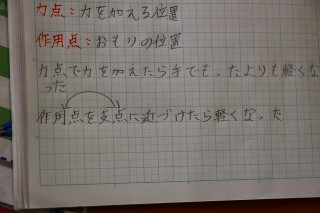 力点:力を加える位置
作用点:おもりの位置
力点で力を加えたら手でもったよりも軽くな
った
作用点を支点に近づけたら軽くなった